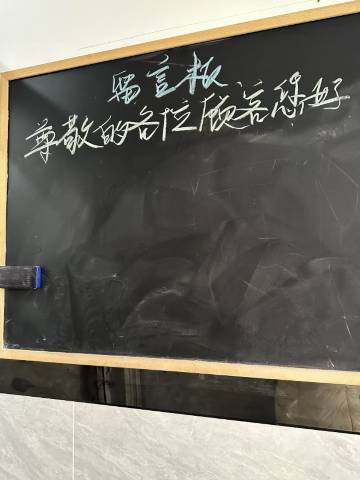 留言板
尊敬的各位顾客您好